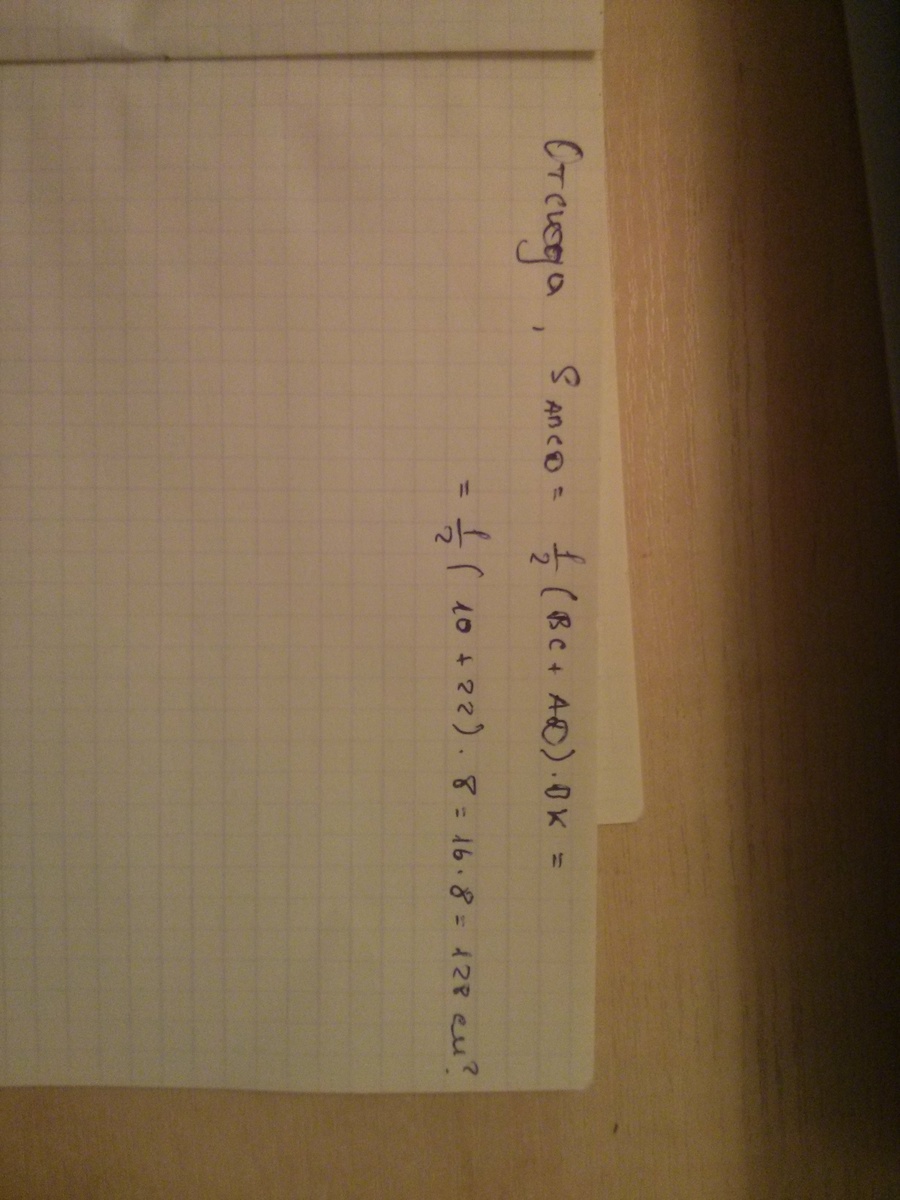 Отсюда, S ABCD = 1/2 (BC + AD) · BK =
= 1/2 ( 10 + 22) · 8 = 16 · 8 = 128 см².